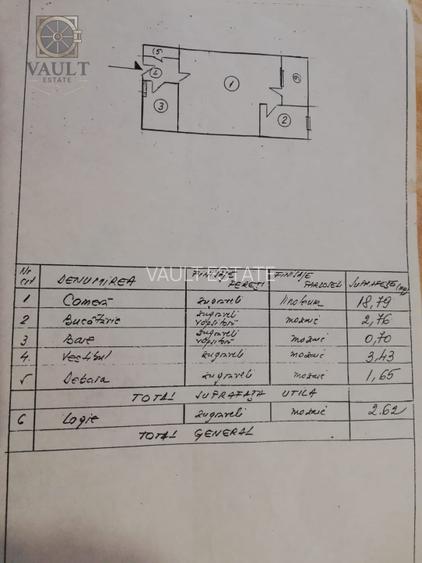 VAULT
ESTATE
5
4
1
3
2
6
VAULT ESTATE
Nr crt DENUMIREA FINISAJE PEREȚI FINISAJE PARDOSELI SUPRAFEȚE (mp)
1 Cameră zugrăveli linoleum 18,79
2 Bucătărie zugrăveli vopsitorii mozaic 2,76
3 Baie zugrăveli vopsitorii mozaic 0,70
4. Vestibul zugrăveli mozaic 3,43
5 Debara zugrăveli mozaic 1,65
TOTAL SUPRAFAȚA UTILA
6 Logie zugrăveli mozaic 2.62
TOTAL GENERAL